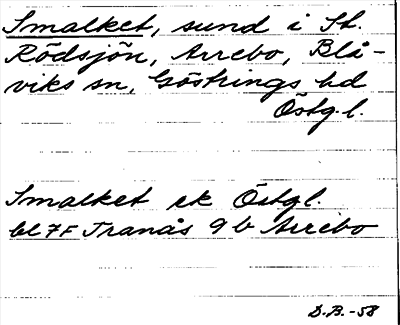 Smalket, sund i St.
Rödsjön, Arrebo, Blå-
viks sn, Göstrings hd
Östg.l.
Smalket ek Östgl.
bl 7F Tranås 9 b Arrebo
D.B.-58